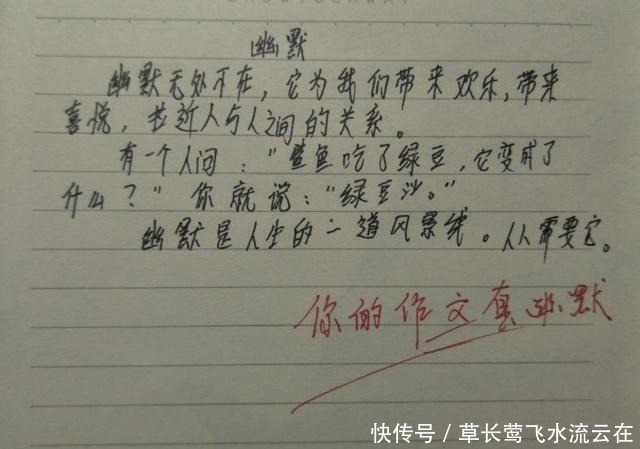 幽默
幽默无处不在，它为我们带来欢乐，带来
喜说，拉近人与人之间的关系。
有一个人问："鲨鱼吃了绿豆，它变成了
什么？" 你就说："绿豆沙。"
幽默是人生的一道风景线。人人需要它。
你的作文真幽默
快传号 / 草长莺飞水流云在